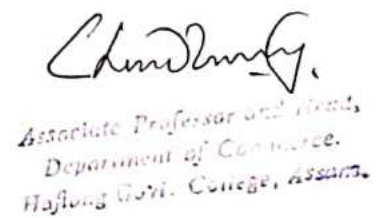 Associate Professor and Head,
Department of Commerce.
Haflong Govt. College, Assam.